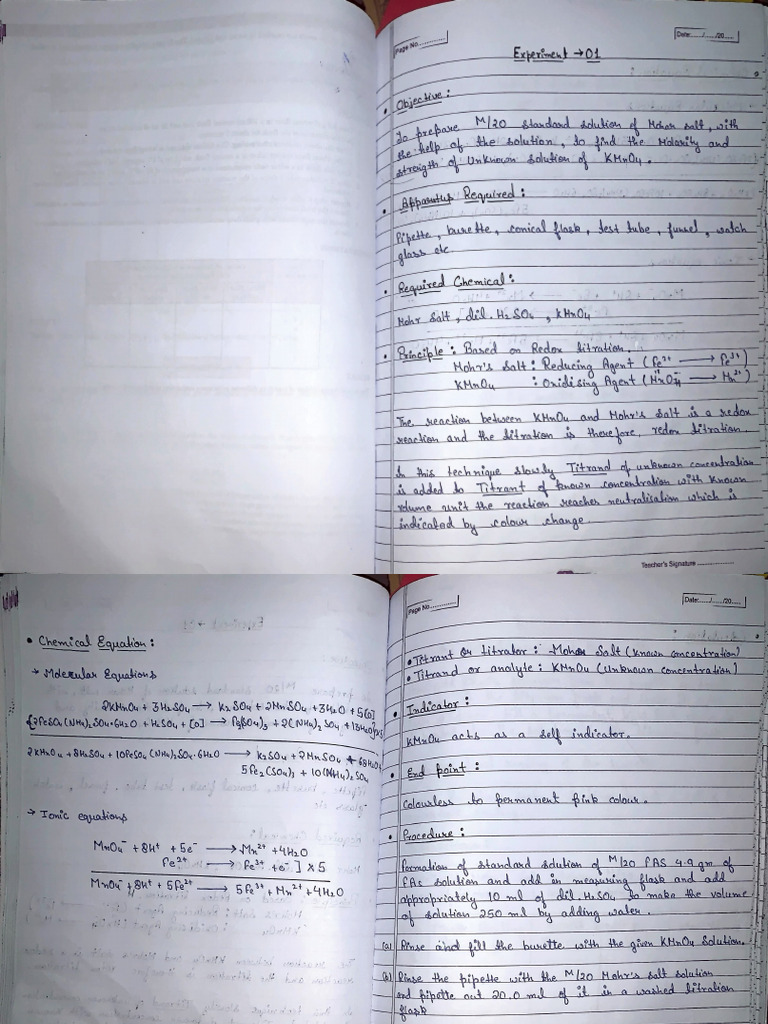 Page No.............
Date:....../....../20.....
Experiment → 01
• Objective :
To prepare M/20 standard solution of Mohor salt, with
the help of the solution, to find the Molarity and
strength of Unknown solution of KMnO4.
• Apparatus Required :
Pipette, burette, conical flask, test tube, funnel, watch
glass etc
• Required Chemical :
Mohr Salt, dil. H2SO4, KMnO4
• Principle : Based on Redox titration.
Mohr's salt : Reducing Agent (Fe2+ → Fe3+)
KMnO4 : Oxidising Agent (MnO4- → Mn2+)
The reaction between KMnO4 and Mohr's salt is a redox
reaction and the titration is therefore, redox titration.
In this technique slowly Titrand of unknown concentration
is added to Titrant of known concentration with known
volume unit the reaction reaches neutralisation which is
indicated by colour change.
Teacher's Signature ..................
• Chemical Equation :
→ Molecular Equations
2KMnO4 + 3H2SO4 → K2SO4 + 2MnSO4 + 3H2O + 5[O]
{2FeSO4(NH4)2SO4·6H2O + H2SO4 + [O] → Fe2(SO4)3 + 2(NH4)2SO4 + 13H2O}×5
2KMnO4 + 8H2SO4 + 10FeSO4(NH4)2SO4·6H2O → K2SO4 + 2MnSO4 + 68H2O +
5Fe2(SO4)3 + 10(NH4)2SO4
→ Ionic equations
MnO4- + 8H+ + 5e- → Mn2+ + 4H2O
Fe2+ → Fe3+ + e- ] × 5
MnO4- + 8H+ + 5Fe2+ → 5Fe3+ + Mn2+ + 4H2O
Page No.............
Date:....../....../20.....
• Titrant or titrator : Mohor Salt (known concentration)
• Titrand or analyte : KMnO4 (Unknown concentration)
• Indicator :
KMnO4 acts as a self indicator.
• End point :
Colourless to permanent pink colour.
• Procedure :
Formation of standard solution of M/20 FAS 4.9 gm of
FAS solution and add in measuring flask and add
appropriately 10 ml of dil. H2SO4 to make the volume
of solution 250 ml by adding water.
(a) Rinse and fill the burette with the given KMnO4 solution.
(b) Rinse the pipette with the M/20 Mohr's salt solution
and pipette out 20.0 ml of it in a washed titration
flask